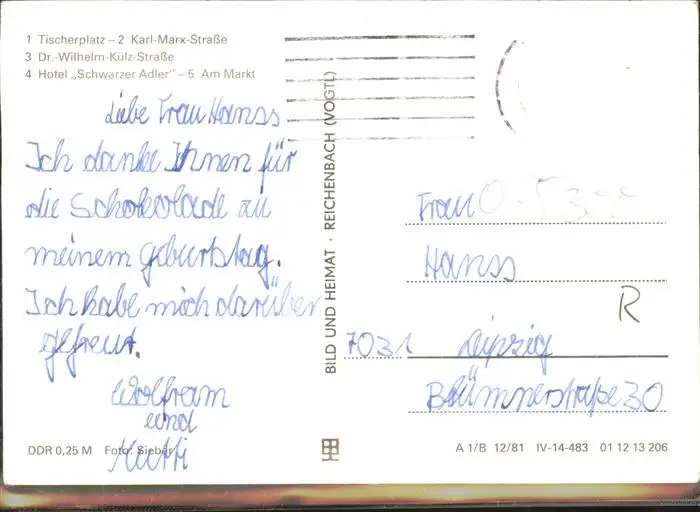 1 Tischerplatz – 2 Karl-Marx-Straße
3 Dr.-Wilhelm-Külz-Straße
4 Hotel „Schwarzer Adler" – 5 Am Markt
Liebe Frau Hanss
Ich danke Ihnen für
die Schokolade zu
meinem Geburtstag.
Ich habe mich darüber
gefreut.
Wolfram
und
Mutti
DDR 0,25 M Foto: Sieber
BILD UND HEIMAT · REICHENBACH (VOGTL)
Frau
Hanss
R
7031 Leipzig
Blümnerstraße 30
A 1/B 12/81 IV-14-483 01 12 13 206